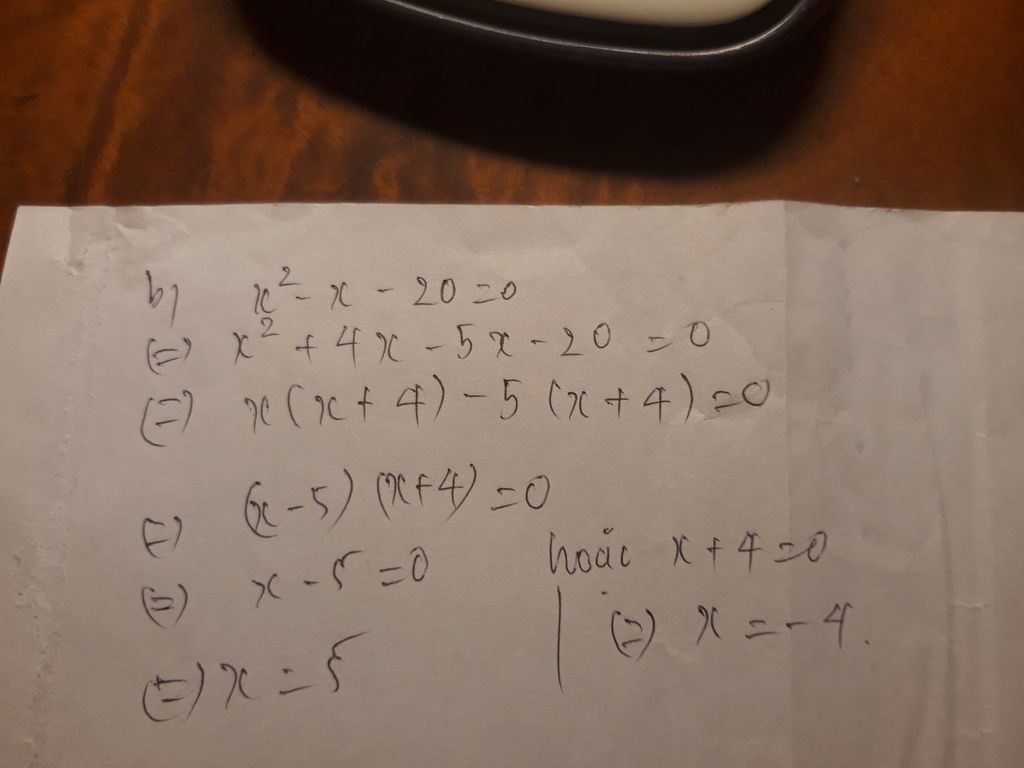 b) x² - x - 20 = 0
(=) x² + 4x - 5x - 20 = 0
(=) x(x + 4) - 5 (x + 4) = 0
(=) (x - 5) (x + 4) = 0
(=) x - 5 = 0 hoặc x + 4 = 0
(=) x = 5 | (=) x = - 4.